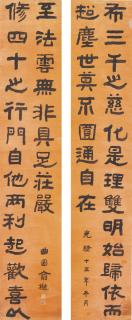 布三千之慈化是理双明始歸依而
起塵世莫不圓通自在
光緒十五年
至法雲無非具足莊嚴
修四十心行門自他两利起歡喜以
曲園俞樾